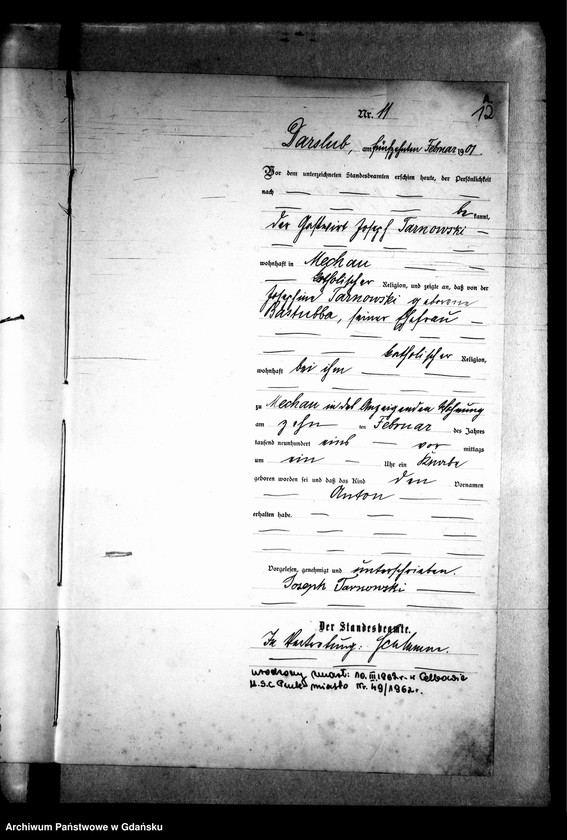 12
Nr. 11
Darslub, am fünfzehnten Februar 1901
Vor dem unterzeichneten Standesbeamten erschien heute, der Persönlichkeit
nach
be kannt,
der Gastwirt Joseph Tarnowski
wohnhaft in Mechau
katholischer Religion, und zeigte an, daß von der
Josephine Tarnowski geborene
Bartubba, seiner Ehefrau
katholischer Religion,
wohnhaft bei ihm
zu Mechau in des Anzeigenden Wohnung
am zehn ten Februar des Jahres
tausend neunhundert eins vor mittags
um ein Uhr ein Knabe
geboren worden sei und daß das Kind den Vornamen
Anton
erhalten habe.
Vorgelesen, genehmigt und unterschrieben.
Joseph Tarnowski
Der Standesbeamte.
In Vertretung:
urodzony zmarł: 10.III 1962 r. w Celbowie
U.S.C. miasto Nr. 49/1962 r.
Archiwum Państwowe w Gdańsku